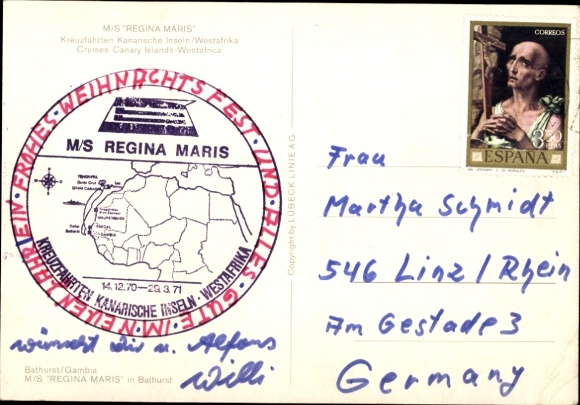 M/S "REGINA MARIS"
Kreuzfahrten Kanarische Inseln/Westafrika
Cruises Canary Islands-Westafrica
CORREOS
3,50
PTAS
ESPAÑA
EIN · FROHES · WEIHNACHTSFEST · UND · ALLES · GUTE · IM · NEUEN JAHR
M/S REGINA MARIS
14.12.70–29.3.71
KREUZFAHRTEN KANARISCHE INSELN · WESTAFRIKA
Copyright by LÜBECK LINIE AG
Frau
Martha Schmidt
546 Linz/Rhein
Am Gestade 3
Germany
wünscht dir u. Alfons
Willi
Bathurst/Gambia
M/S "REGINA MARIS" in Bathurst